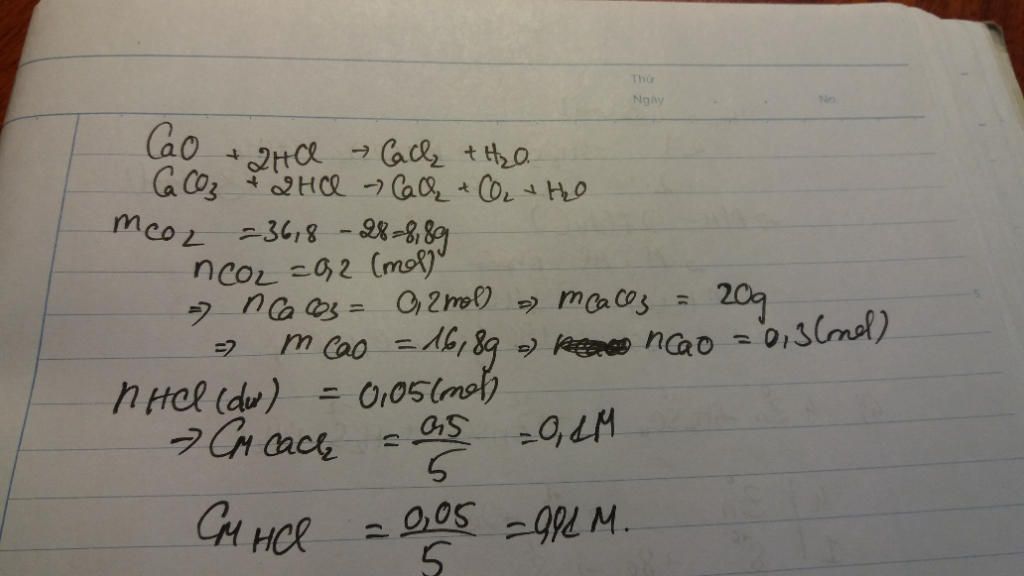 Thứ
Ngày No.
CaO + 2HCl → CaCl₂ + H₂O.
CaCO₃ + 2HCl → CaCl₂ + CO₂ + H₂O
mCO₂ = 36,8 - 28 = 8,8g
nCO₂ = 0,2 (mol)
⇒ nCaCO₃ = 0,2mol ⇒ mCaCO₃ = 20g
⇒ mCaO = 16,8g ⇒ nCaO = 0,3(mol)
nHCl(dư) = 0,05(mol)
→ CM CaCl₂ = 0,5/5 = 0,1M
CM HCl = 0,05/5 = 0,01M.